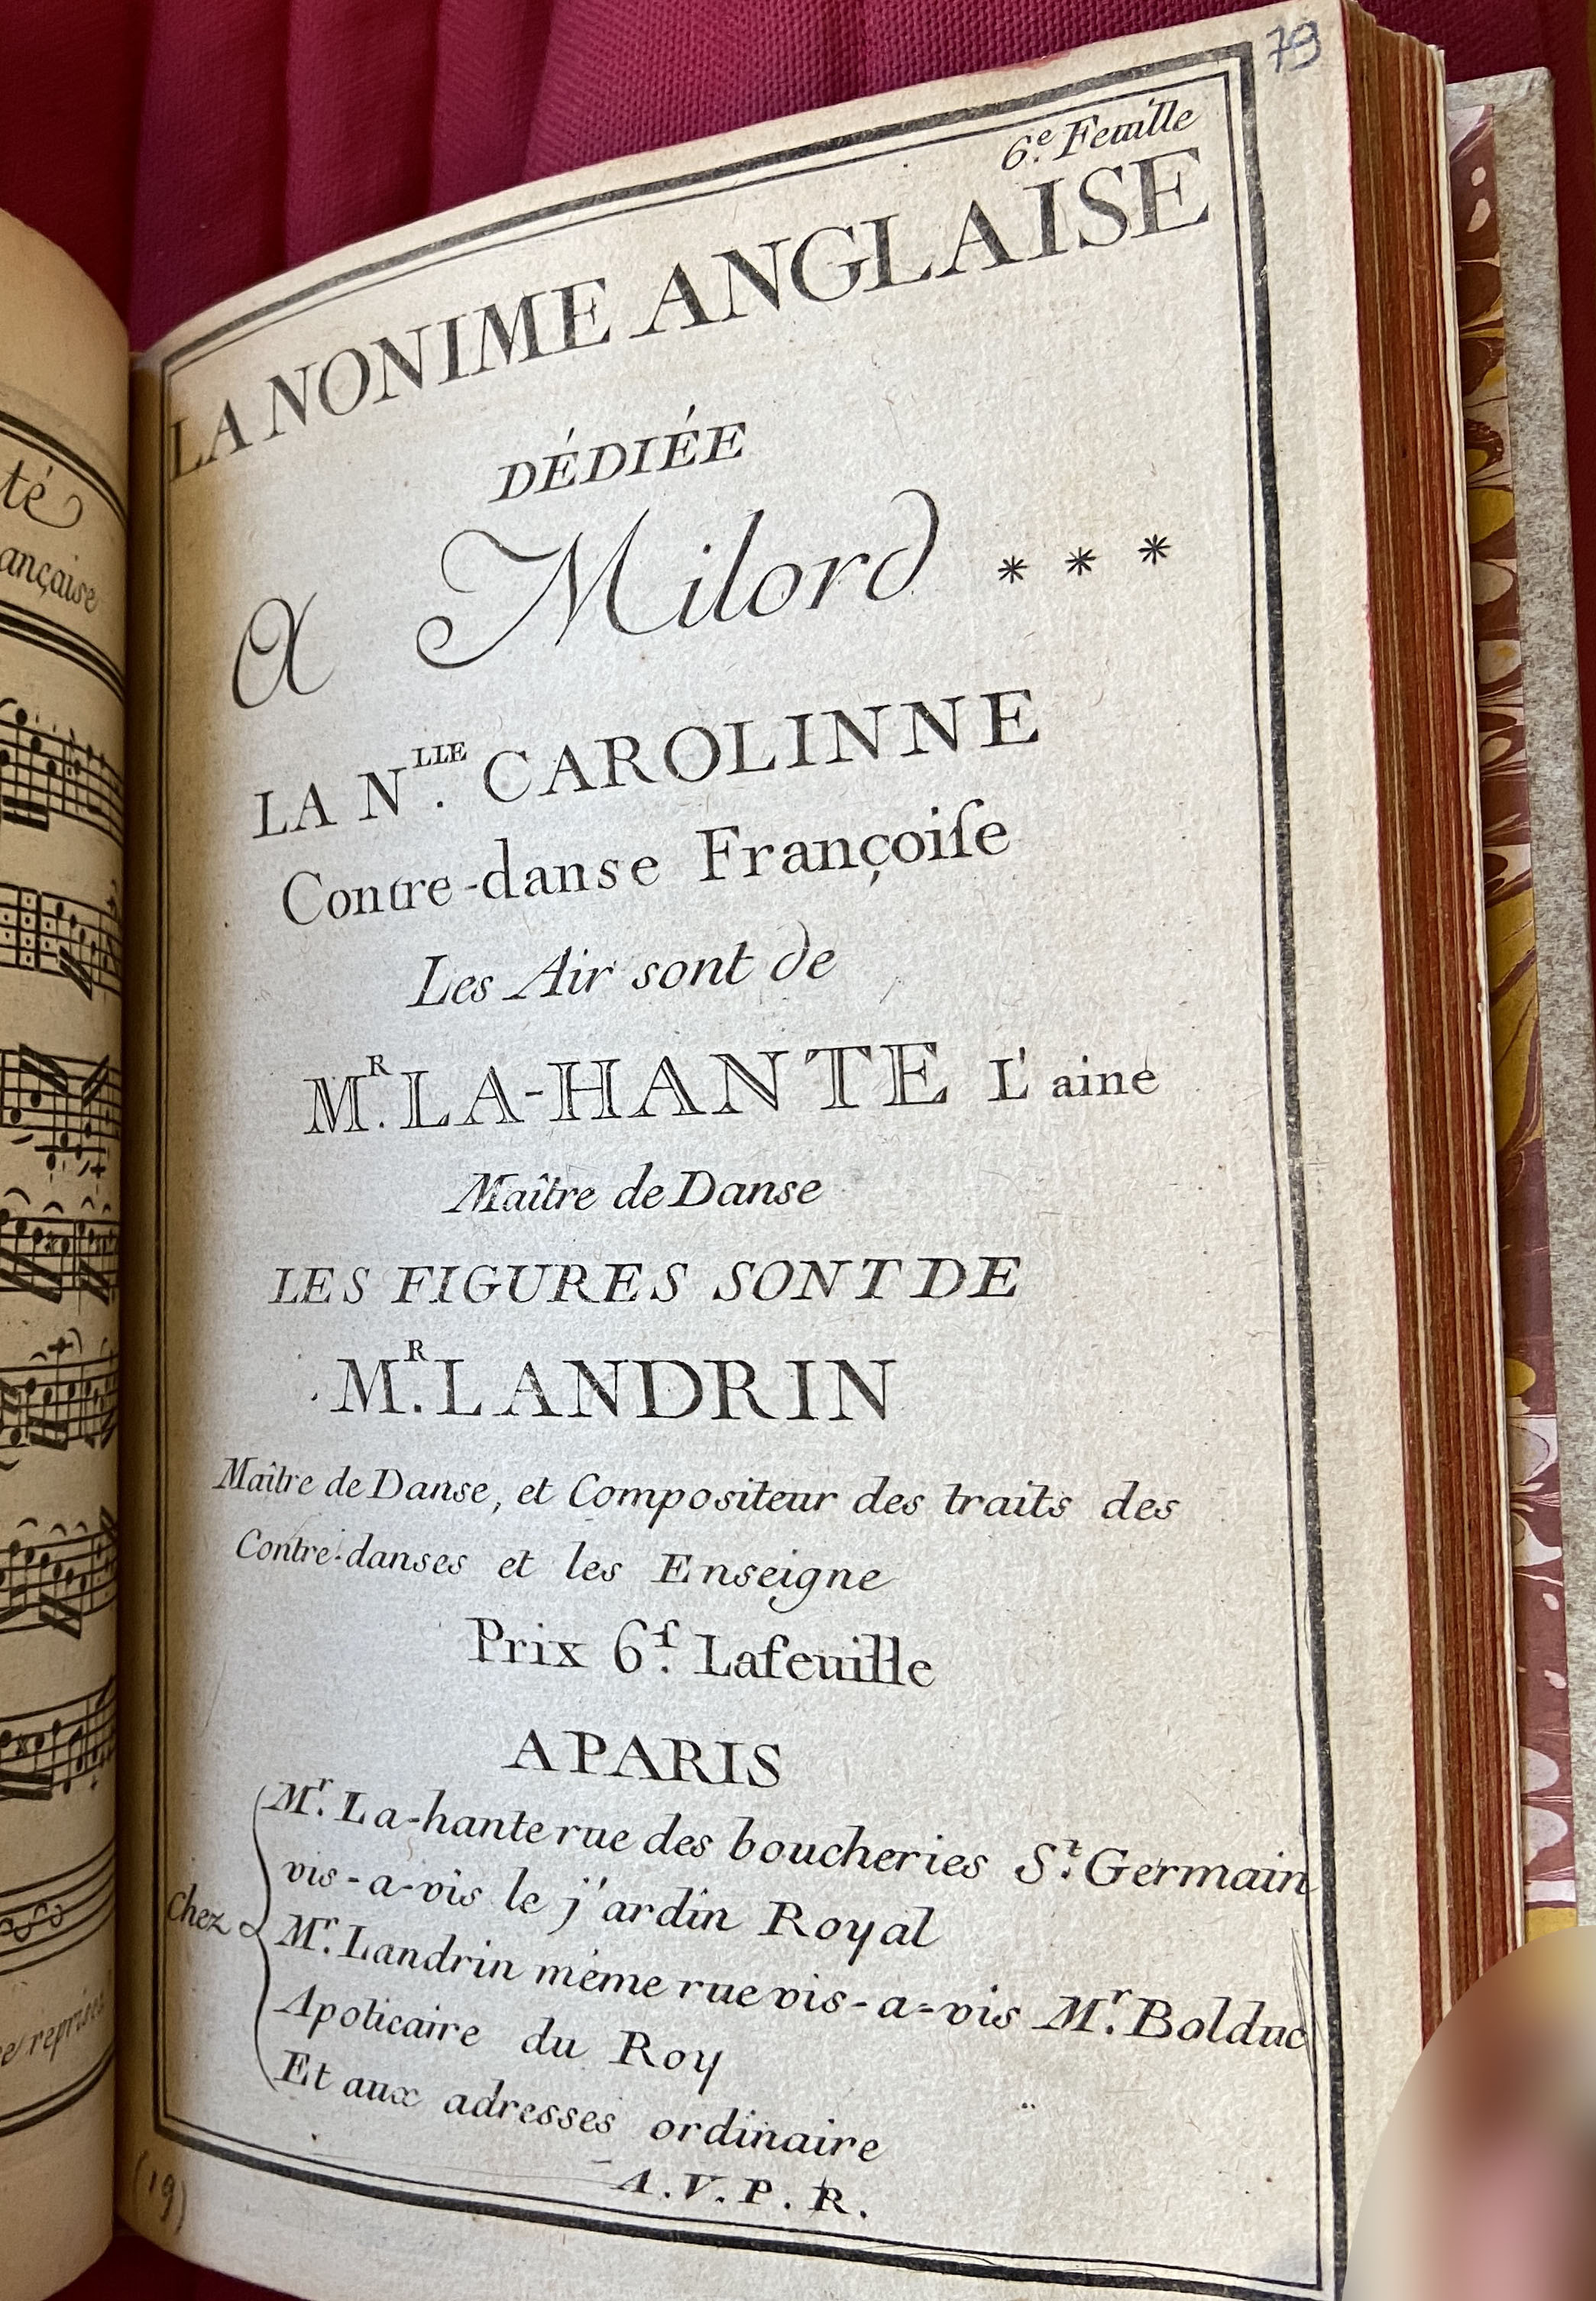 té
ançaise
e reprises
79
6.e Feuille
LA NONIME ANGLAISE
DÉDIÉE
A Milord * * *
LA N.LLE CAROLINNE
Contre-danse Françoiſe
Les Air sont de
M.R LA-HANTE L'ainé
Maître de Danse
LES FIGURES SONT DE
M.R LANDRIN
Maître de Danse, et Compositeur des traits des
Contre-danses et les Enseigne
Prix 6.ſ Lafeuille
A PARIS
Chez
M.r La-hante rue des boucheries S.t Germain
vis-a-vis le j'ardin Royal
M.r Landrin même rue vis-a-vis M.r Bolduc
Apoticaire du Roy
Et aux adresses ordinaire
A.V.P.R.
(19)